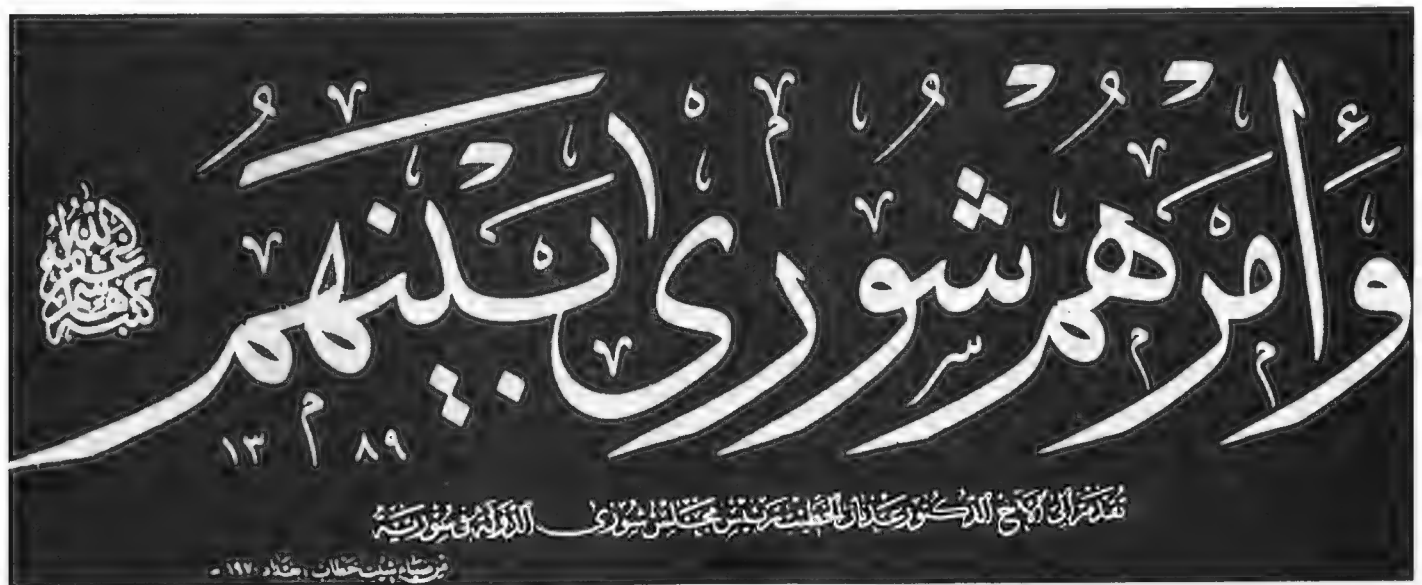 وَأَمْرُهُمْ شُورَىٰ بَيْنَهُمْ
١٣٨٩
تقدم إلى الأخ الدكتور عدنان الخطيب رئيس مجلس شورى الدولة في سورية
من ضياء شيت خطاب بغداد ١٩٧٠